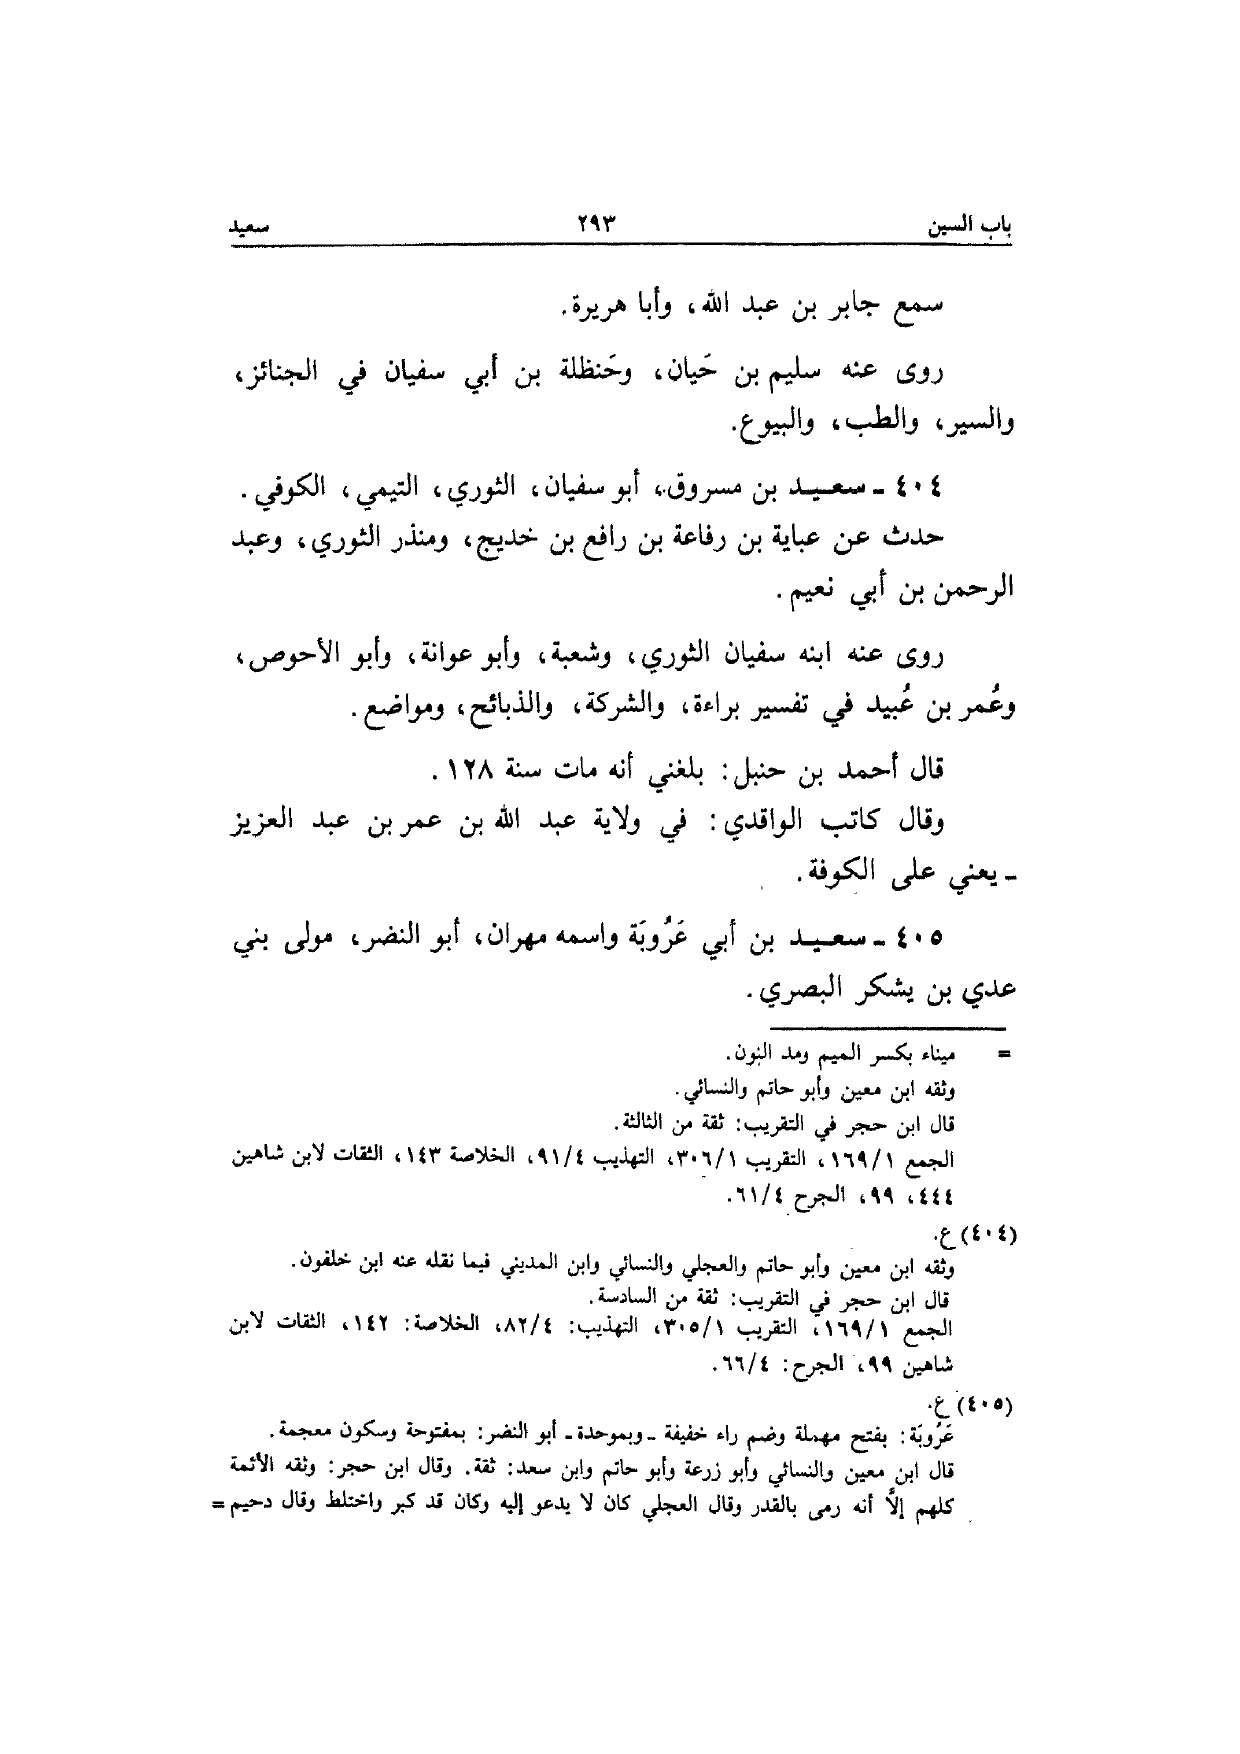 باب السين ٢٩٣ سعيد
سمع جابر بن عبد الله، وأبا هريرة.
روى عنه سليم بن حَيان، وحَنظلة بن أبي سفيان في الجنائز،
والسير، والطب، والبيوع.
٤٠٤ ـ سعيد بن مسروق، أبو سفيان، الثوري، التيمي، الكوفي.
حدث عن عباية بن رفاعة بن رافع بن خديج، ومنذر الثوري، وعبد
الرحمن بن أبي نعيم.
روى عنه ابنه سفيان الثوري، وشعبة، وأبو عوانة، وأبو الأحوص،
وعُمر بن عُبيد في تفسير براءة، والشركة، والذبائح، ومواضع.
قال أحمد بن حنبل: بلغني أنه مات سنة ١٢٨.
وقال كاتب الواقدي: في ولاية عبد الله بن عمر بن عبد العزيز
ـ يعني على الكوفة.
٤٠٥ ـ سعيد بن أبي عَرُوبَة واسمه مهران، أبو النضر، مولى بني
عدي بن يشكر البصري.
= ميناء بكسر الميم ومد النون.
وثقه ابن معين وأبو حاتم والنسائي.
قال ابن حجر في التقريب: ثقة من الثالثة.
الجمع ١/١٦٩، التقريب ١/٣٠٦، التهذيب ٤/٩١، الخلاصة ١٤٣، الثقات لابن شاهين
٤٤٤، ٩٩، الجرح ٤/٦١.
(٤٠٤) ع.
وثقه ابن معين وأبو حاتم والعجلي والنسائي وابن المديني فيما نقله عنه ابن خلفون.
قال ابن حجر في التقريب: ثقة من السادسة.
الجمع ١/١٦٩، التقريب ١/٣٠٥، التهذيب: ٤/٨٢، الخلاصة: ١٤٢، الثقات لابن
شاهين ٩٩، الجرح: ٤/٦٦.
(٤٠٥) ع.
عَرُوبَة: بفتح مهملة وضم راء خفيفة ـ وبموحدة ـ أبو النضر: بمفتوحة وسكون معجمة.
قال ابن معين والنسائي وأبو زرعة وأبو حاتم وابن سعد: ثقة. وقال ابن حجر: وثقه الأئمة
كلهم إلاَّ أنه رمى بالقدر وقال العجلي كان لا يدعو إليه وكان قد كبر واختلط وقال دحيم =